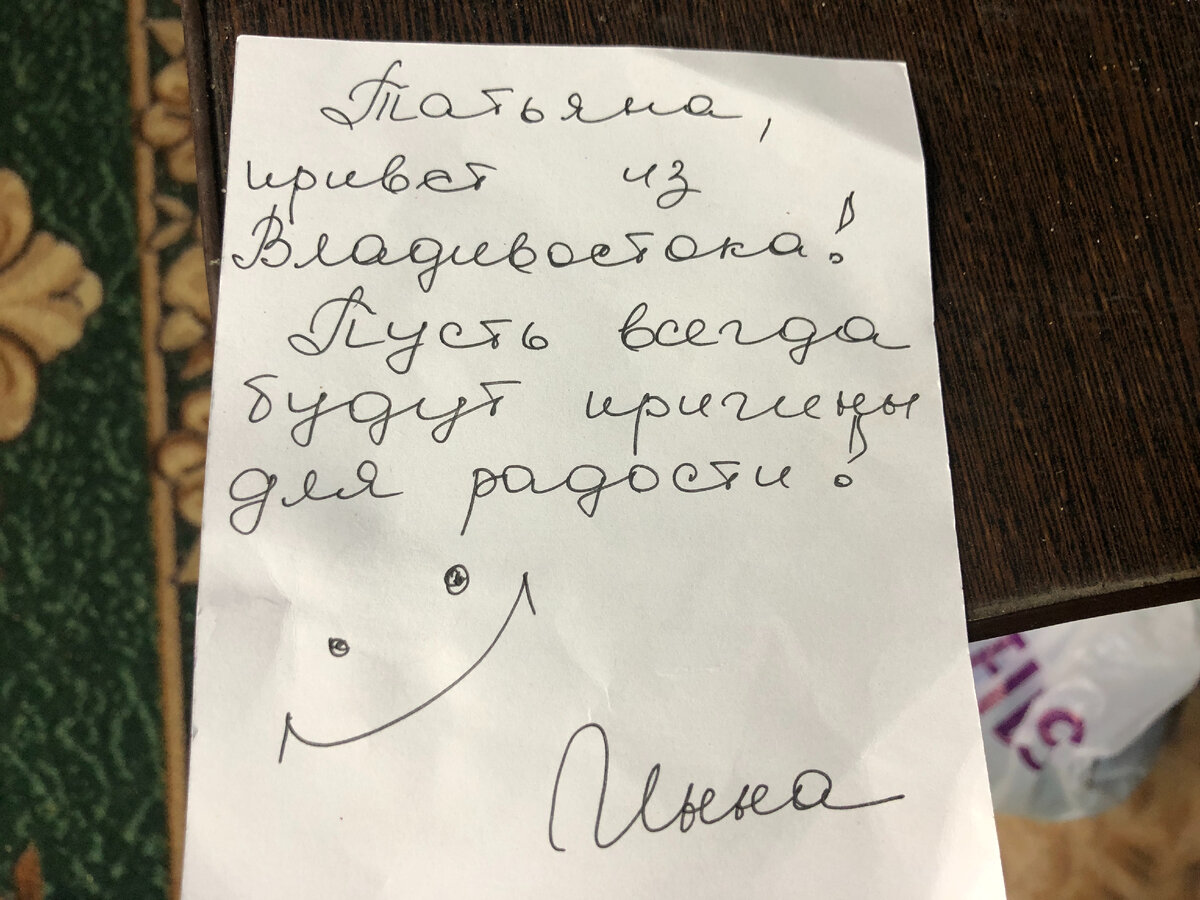 Татьяна,
привет из
Владивостока!
Пусть всегда
будут причины
для радости!
Инна